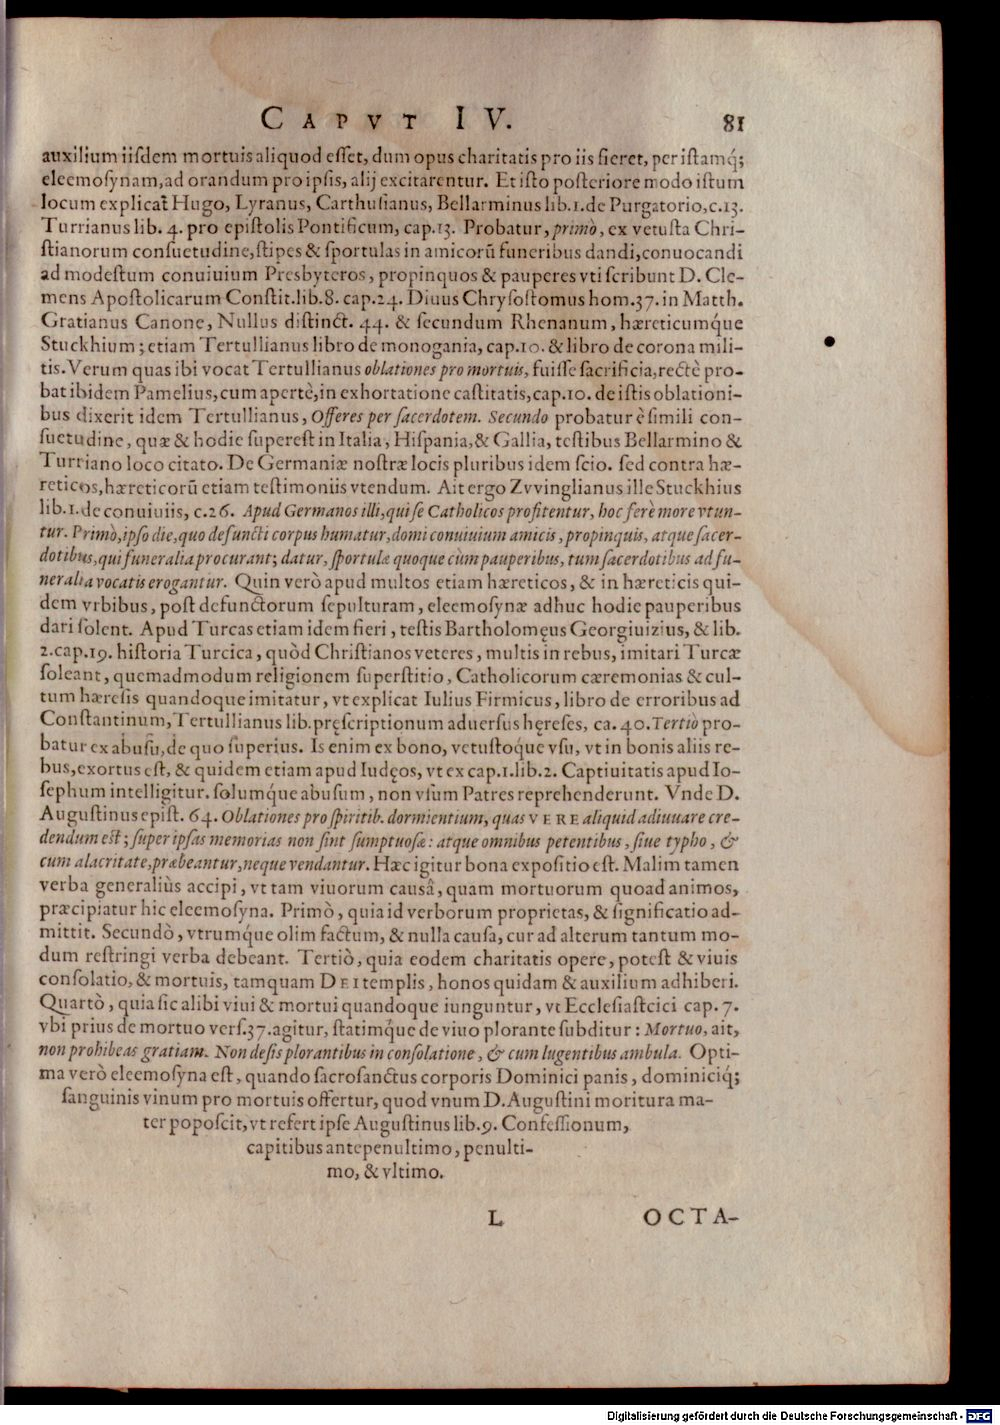 CAPVT IV. 81
auxilium iisdem mortuis aliquod esſet, dum opus charitatis pro iis fieret, per iſtamq́;
eleemoſynam, ad orandum pro ipſis, alij excitarentur. Et iſto poſteriore modo iſtum
locum explicat Hugo, Lyranus, Carthuſianus, Bellarminus lib. 1. de Purgatorio, c. 13.
Turrianus lib. 4. pro epiſtolis Pontificum, cap. 13. Probatur, primò, ex vetuſta Chri-
ſtianorum conſuetudine, ſtipes & ſportulas in amicorũ funeribus dandi, conuocandi
ad modeſtum conuiuium Presbyteros, propinquos & pauperes vti ſcribunt D. Cle-
mens Apoſtolicarum Conſtit. lib. 8. cap. 24. Diuus Chryſoſtomus hom. 37. in Matth.
Gratianus Canone, Nullus diſtinct. 44. & ſecundum Rhenanum, hæreticumq́ue
Stuckhium; etiam Tertullianus libro de monogania, cap. 10. & libro de corona mili-
tis. Verum quas ibi vocat Tertullianus oblationes pro mortuis, fuiſſe ſacrificia, rectè pro-
bat ibidem Pamelius, cum apertè, in exhortatione caſtitatis, cap. 10. de iſtis oblationi-
bus dixerit idem Tertullianus, Offeres per ſacerdotem. Secundo probatur è ſimili con-
ſuetudine, quæ & hodie ſupereſt in Italia, Hiſpania, & Gallia, teſtibus Bellarmino &
Turriano loco citato. De Germaniæ noſtræ locis pluribus idem ſcio. ſed contra hæ-
reticos, hæreticorũ etiam teſtimoniis vtendum. Ait ergo Zvvinglianus ille Stuckhius
lib. 1. de conuiuiis, c. 26. Apud Germanos illi, qui ſe Catholicos profitentur, hoc ferè more vtun-
tur. Primò, ipſo die, quo defuncti corpus humatur, domi conuiuium amicis, propinquis, atque ſacer-
dotibus, qui funeralia procurant; datur, ſportulæ quoque cùm pauperibus, tum ſacerdotibus ad fu-
neralia vocatis erogantur. Quin verò apud multos etiam hæreticos, & in hæreticis qui-
dem vrbibus, poſt defunctorum ſepulturam, eleemoſynæ adhuc hodie pauperibus
dari ſolent. Apud Turcas etiam idem fieri, teſtis Bartholomęus Georgiuizius, & lib.
2. cap. 19. hiſtoria Turcica, quòd Chriſtianos veteres, multis in rebus, imitari Turcæ
ſoleant, quemadmodum religionem ſuperſtitio, Catholicorum cæremonias & cul-
tum hæreſis quandoque imitatur, vt explicat Iulius Firmicus, libro de erroribus ad
Conſtantinum, Tertullianus lib. pręſcriptionum aduerſus hęreſes, ca. 40. Tertiò pro-
batur ex abuſu, de quo ſuperius. Is enim ex bono, vetuſtoq́ue vſu, vt in bonis aliis re-
bus, exortus eſt, & quidem etiam apud Iudęos, vt ex cap. 1. lib. 2. Captiuitatis apud Io-
ſephum intelligitur. ſolumq́ue abuſum, non vſum Patres reprehenderunt. Vnde D.
Auguſtinus epiſt. 64. Oblationes pro ſpiritib. dormientium, quas VERE aliquid adiuuare cre-
dendum eſt; ſuper ipſas memorias non ſint ſumptuoſæ: atque omnibus petentibus, ſiue typho, &
cum alacritate, præbeantur, neque vendantur. Hæc igitur bona expoſitio eſt. Malim tamen
verba generaliùs accipi, vt tam viuorum causâ, quam mortuorum quoad animos,
præcipiatur hic eleemoſyna. Primò, quia id verborum proprietas, & ſignificatio ad-
mittit. Secundò, vtrumq́ue olim factum, & nulla cauſa, cur ad alterum tantum mo-
dum reſtringi verba debeant. Tertiò, quia eodem charitatis opere, poteſt & viuis
conſolatio, & mortuis, tamquam DEI templis, honos quidam & auxilium adhiberi.
Quartò, quia ſic alibi viui & mortui quandoque iunguntur, vt Eccleſiaſtcici cap. 7.
vbi prius de mortuo verſ. 37. agitur, ſtatimq́ue de viuo plorante ſubditur: Mortuo, ait,
non prohibeas gratiam. Non deſis plorantibus in conſolatione, & cum lugentibus ambula. Opti-
ma verò eleemoſyna eſt, quando ſacroſanctus corporis Dominici panis, dominiciq́;
ſanguinis vinum pro mortuis offertur, quod vnum D. Auguſtini moritura ma-
ter popoſcit, vt refert ipſe Auguſtinus lib. 9. Confeſſionum,
capitibus antepenultimo, penulti-
mo, & vltimo.
L OCTA-
Digitalisierung gefördert durch die Deutsche Forschungsgemeinschaft - DFG